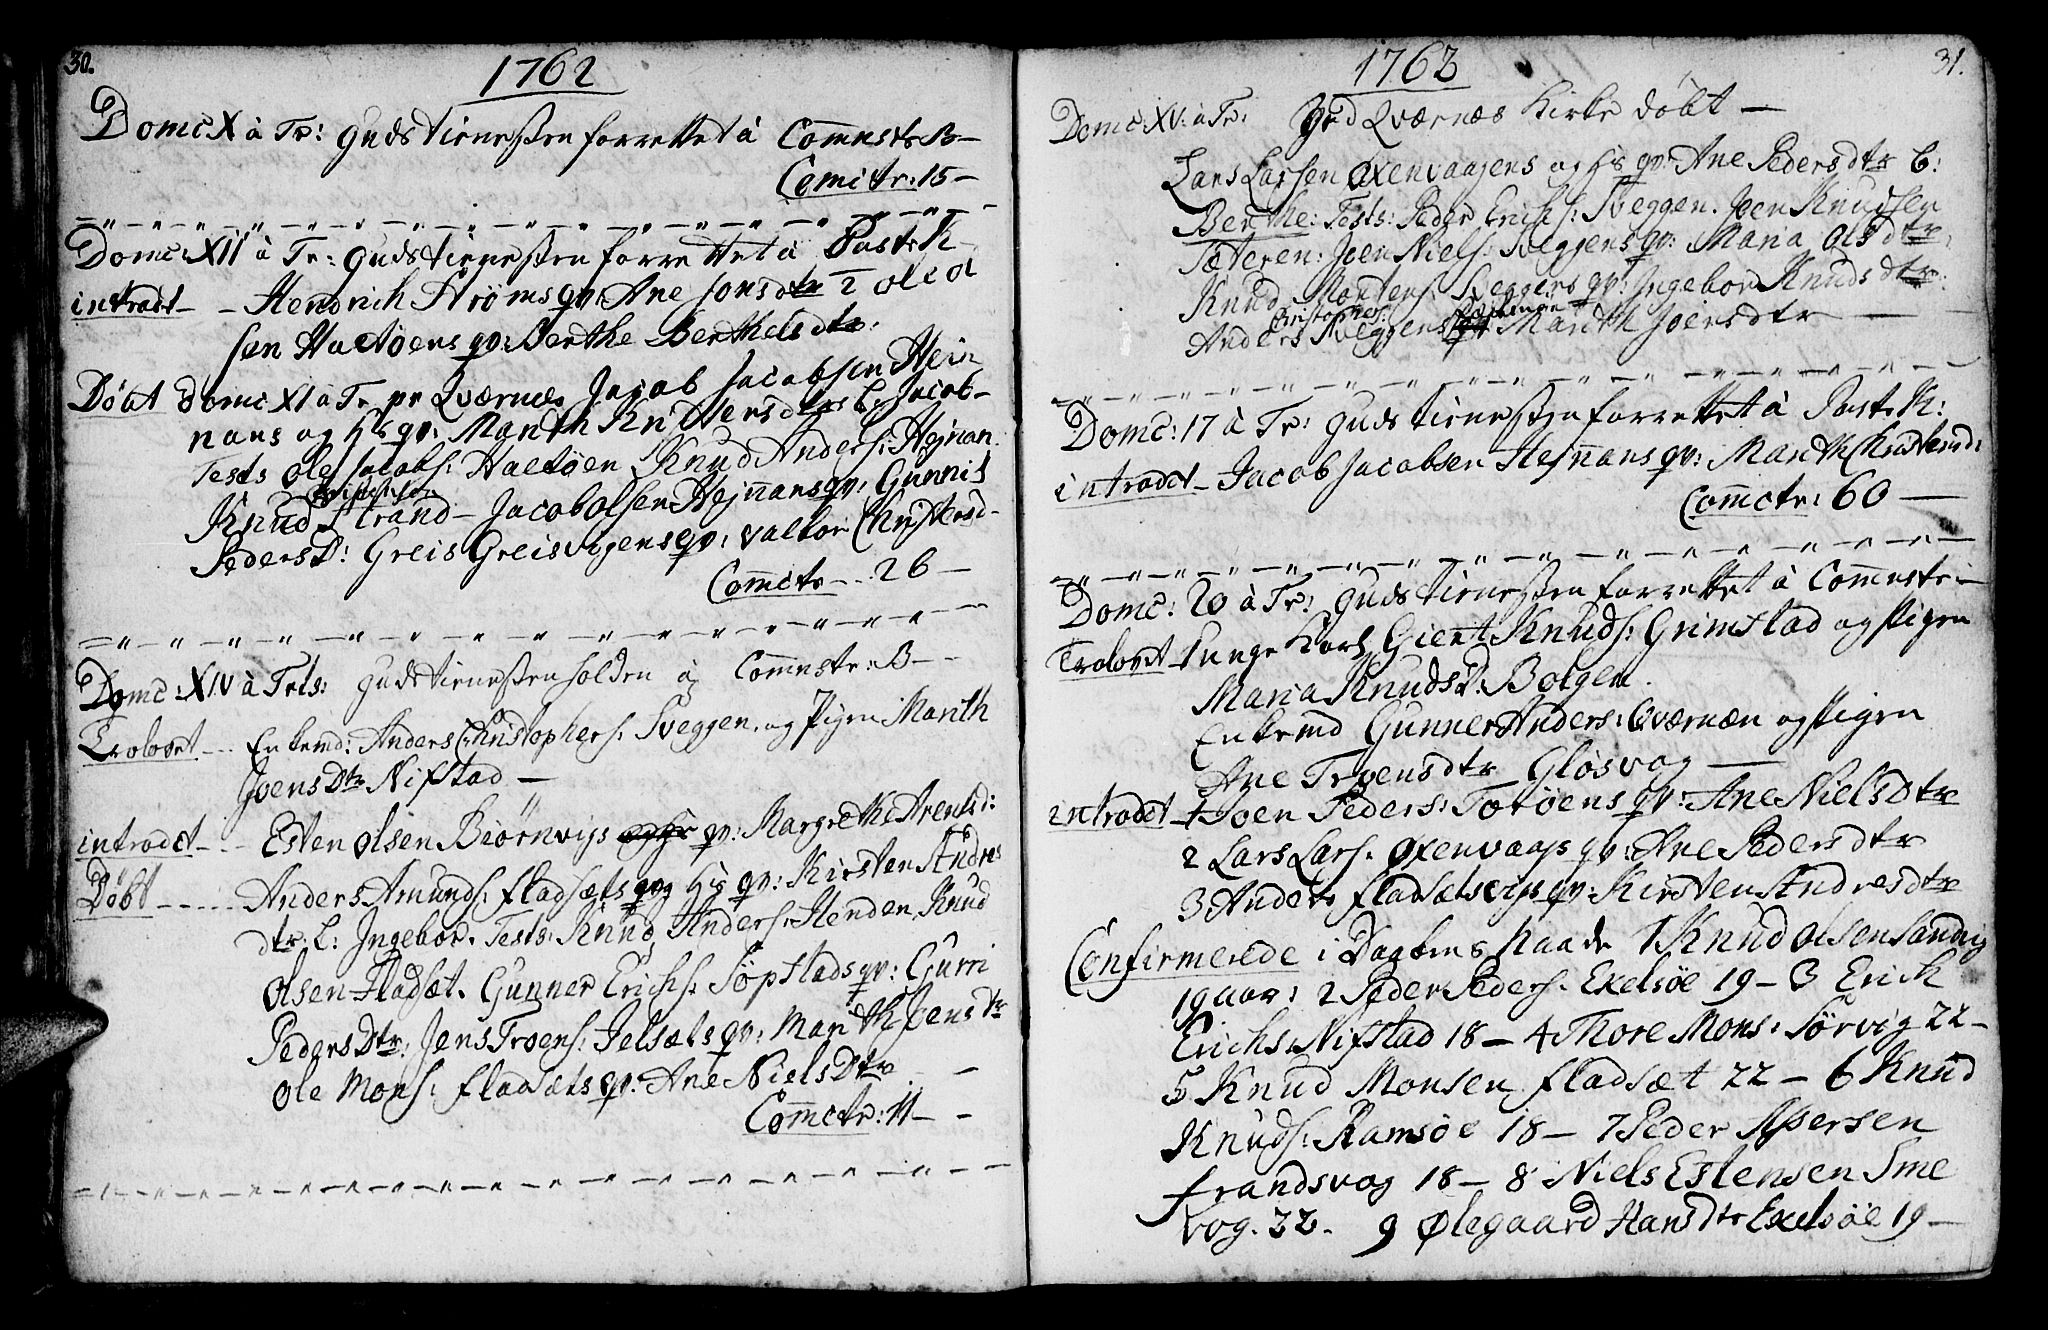 30.
1762
Domc X â Tr: Guds tienesten forrettet â Com̅nstr B-
Com̅ctr: 15-
Domc: XII â Tr: Guds tienesten forrettet â Past: K
introdt - - Hendrich Strøms qv: Ane Jonsdtr 2 Ole ol
sen Haetøens qv: Berthe Berthelsdtr:
Døbt domc XI â Tr pr Qværnæs Jacob Jacobsen Hein
nans og Hs qv: Marith Kristensdtrs b: Jacob-
Tests Ole Jacobs: Haetøen Knud Anders: Hejnan
Christensen
Knud Strand - Jacob Olsen Hejn̅ans qv: Gunnil
PedersD: Greis Greisvigens qv: Valbor Christensd-
Com̅ctr - - 26 -
Domc: XIV â Trts: Gudstienesten holden â Com̅nstr: B- -
Trolovet - - Enkemd: Anders Christophers: Sveggen, og Pigen Marith
JoensDtr Nifstad -
introdct - - Esten Olsen Biørnvigs og Hs qv: Margrethe Arentsd:
Døbt - - - - Anders Amunds: Fladsæts qv og Hs qv: Kirsten Andres
dtr: b: Ingebor. Tests: Knud Anders: Henden Knud
Olsen Fladsæt. Gunner Erichs: Søpstads qv: Gurri
PedersDtr: Jens Troens: Jelsæts qv: Marith JoensDtr
Ole Mons: Fladsæts qv: Ane NielsDtr - -
Com̅ctr: 11 - -
31.
1763
Domc: XV: â Tr: Ved Qværnæs Kirke døbt -
Lars Larsen Oxenvaagens og Hs qv: Ane Pedersdtr b:
Berthe: Tests: Peder Erichs: Sveggen. Joen Knudsen
Sæteren: Joen Niels: Sveggens qv: Maria Olsdtr,
Knud Mortens: Sveggens qv: Ingebor Knudsdtr:
Christophers:
Anders Sveggens Marith Joensdtr - -
Domc: 17 â Tr: Guds tienesten forrettet â Past: K:
introdct - Jacob Jacobsen Hejn̅ans qv: Marith Christensd:
Com̅ctr: 60 -
Domc: 20 â Tr: Guds tienesten forrettet â Com̅nstr: -
Trolovet - Unge Karl Giert Knuds: Grimstad og Pigen
Maria KnudsD: Bolgen.
Enkemd Gunner Anders: Qværnæn og Pigen
Ane Troensdtr Gløsvog -
introdct - 1 Joen Peders: Torøens qv: Ane NielsDtr
2 Lars Lars: Oxenvaags qv: Ane Pedersdtr
3 Anders Fladsætsvigs qv: Kirsten Andresdtr
Confirmerede i Dagtens Naade 1 Knud Olsen Sandvig
19 aar: 2 Peder Peders: Exelsøe 19 - 3 Erick
Erichs: Nifstad 18 - 4 Thore Mons: Sørvig 22 -
5 Knud Monsen Fladsæt 22 - 6 Knud
Knuds: Ramsøe 18 - 7 Peder Aspersen
Frandsvog 18 - 8 Niels Estensen Sme
vog. 22 - 9 Ølegaard Hansdtr Exelsøe 19 -